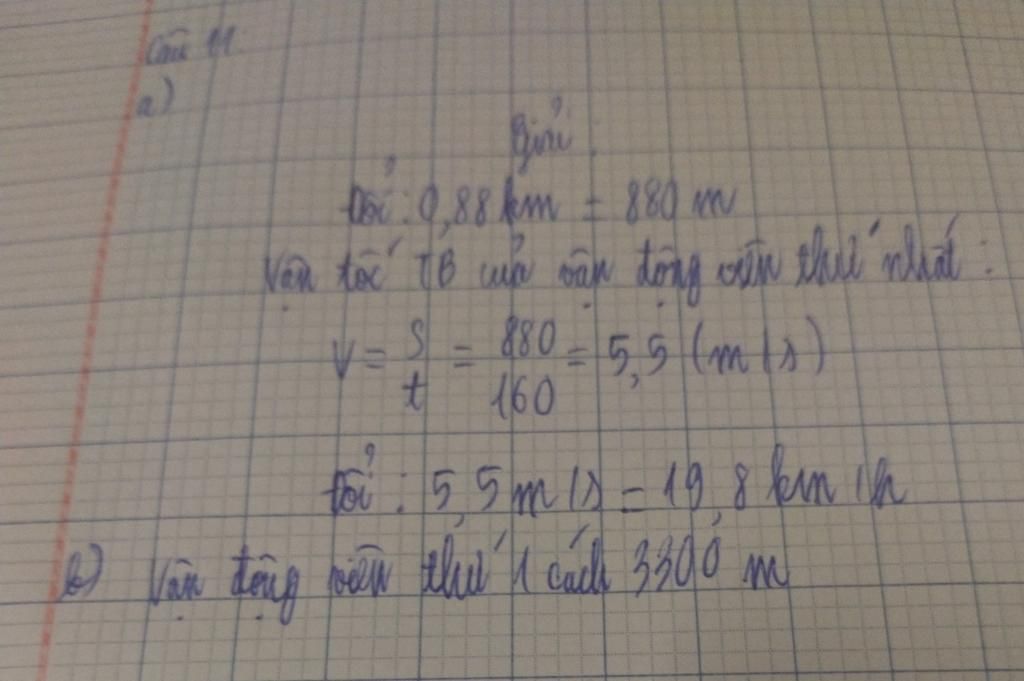 Câu 11:
a)
Giải:
Đổi: 0,88 km = 880 m
Vận tốc TB của vận động viên thứ nhất:
V = S/t = 880/160 = 5,5 (m/s)
Đổi: 5,5 m/s = 19,8 km/h
b) Vận động viên thứ 1 cách 3300 m